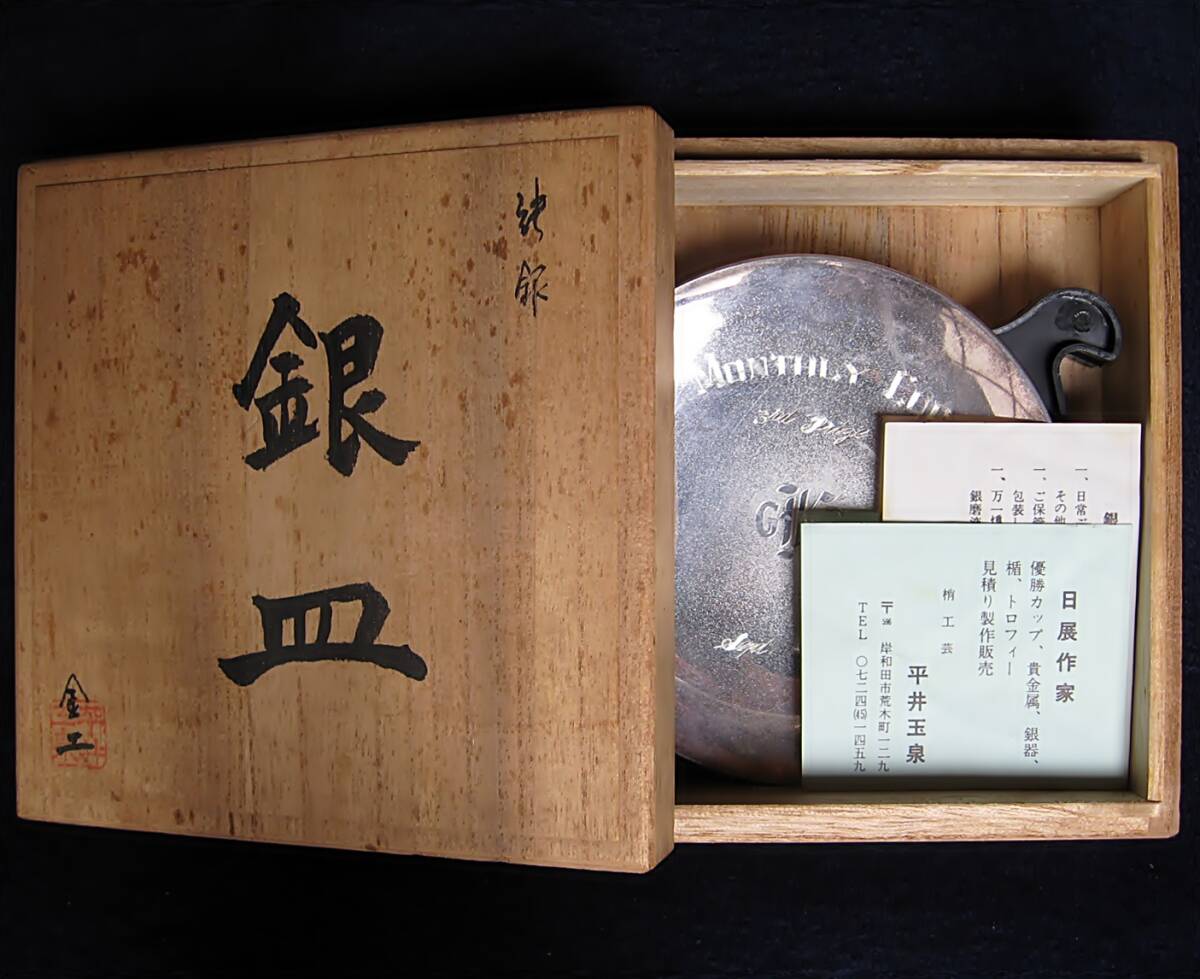 純銀
銀
皿
金工
MONTHLY CUP
3rd Prize
銀
一、日常
その他
一、ご保管
包装し
一、万一
銀磨
日展作家
優勝カップ、貴金属、銀器、
楯、トロフィー
見積り製作販売
工芸
平井玉泉
〒596 岸和田市荒木町一二九
TEL 〇七二四(45)一四五九